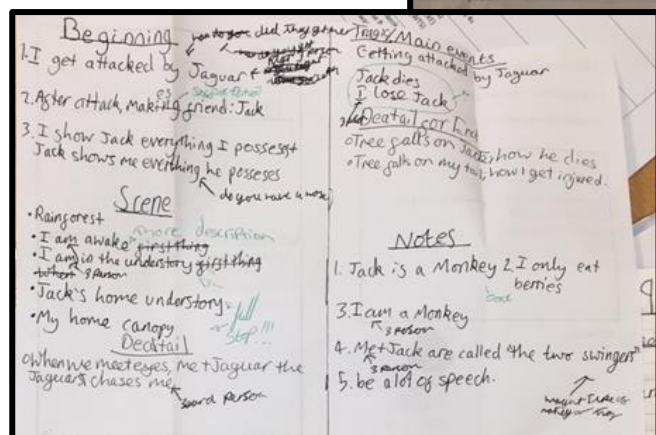 Beginning
did they gather
1. I get attacked by Jaguar
2. After attack, making friend: Jack
3. I show Jack everything I possesst
Jack shows me everthing he posseses
do you have a
Scene
• Rainforest
more description
• I am awake first thing
• I am in the understory first thing
when 3 person
• Jack's home understory.
full
• My home canopy
stop!!!
Deatail
o When we meet eyes, me + Jaguar the
Jaguars chases me
person
Tragis/Main events
Getting attacked by Jaguar
Jack dies
I lose Jack
Deatail for End
o Tree falls on Jack, how he dies
• Tree falls on my tail, how I get injured.
Notes
1. Jack is a Monkey 2. I only eat
berries
3. I am a Monkey
3 person
4. Me + Jack are called "the two swingers"
3 person
5. be a lot of speech.